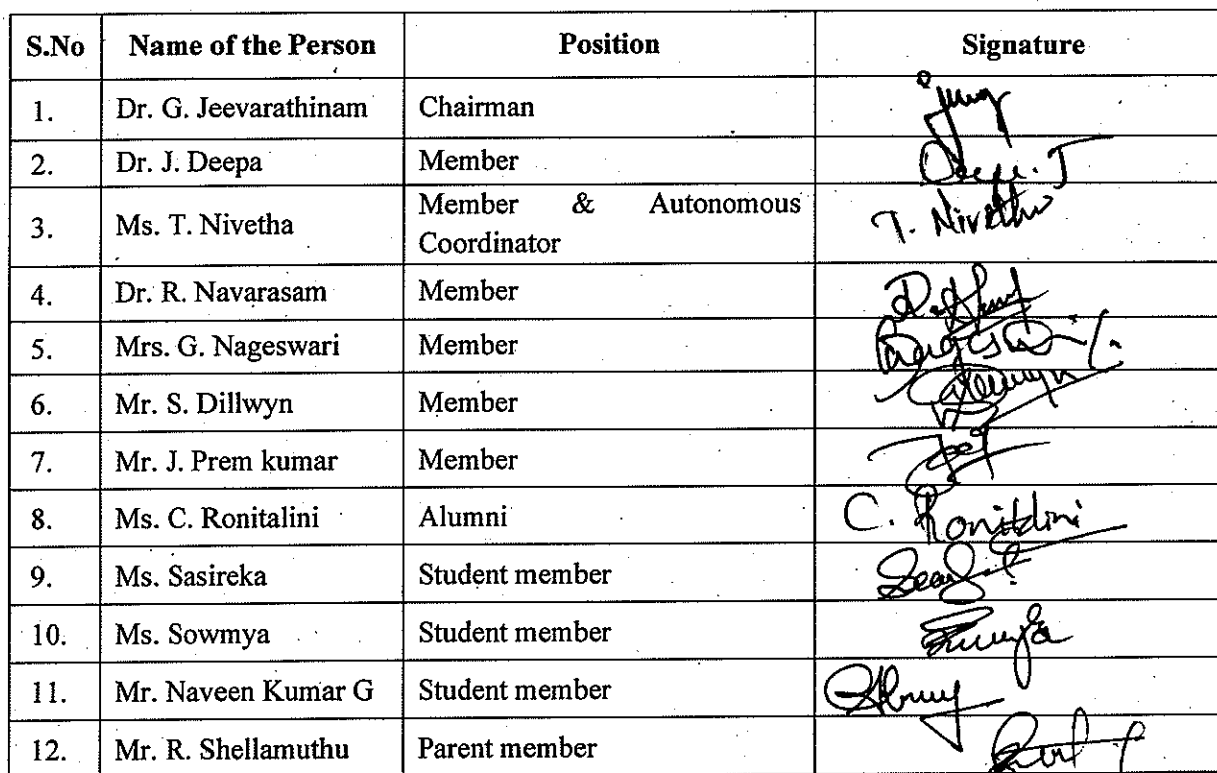 S.No Name of the Person Position Signature
1. Dr. G. Jeevarathinam Chairman
2. Dr. J. Deepa Member Deepa. J
3. Ms. T. Nivetha Member & Autonomous
Coordinator T. Nivetha
4. Dr. R. Navarasam Member
5. Mrs. G. Nageswari Member
6. Mr. S. Dillwyn Member
7. Mr. J. Prem kumar Member
8. Ms. C. Ronitalini Alumni C. Ronitalini
9. Ms. Sasireka Student member
10. Ms. Sowmya Student member
11. Mr. Naveen Kumar G Student member
12. Mr. R. Shellamuthu Parent member